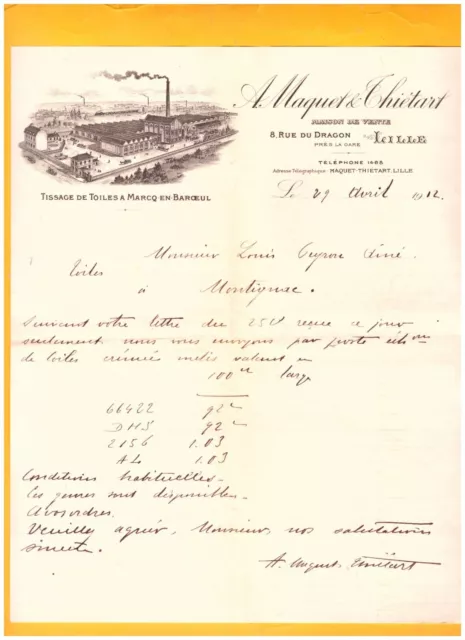 A. Maquet & Thiétart
MAISON DE VENTE
8, RUE DU DRAGON
PRÈS LA GARE
LILLE
TÉLÉPHONE 1468
Adresse Télégraphique MAQUET-THIETART-LILLE
TISSAGE DE TOILES A MARCQ-EN-BARŒUL
Le 29 Avril 1912
Monsieur Louis Peyrou Ainé
Toiles
à Montignac.
Suivant votre lettre du 25 Ct reçue ce jour
seulement nous vous envoyons par poste échons
de toiles crémées métis valant en
100 cm large
66422 92 c
DHS 92 c
2156 1.03
AL 1.03
Conditions habituelles.
Ces genres sont disponibles.
A vos ordres.
Veuillez agréer, Monsieur, nos salutations
sincères.
A. Maquet Thiétart